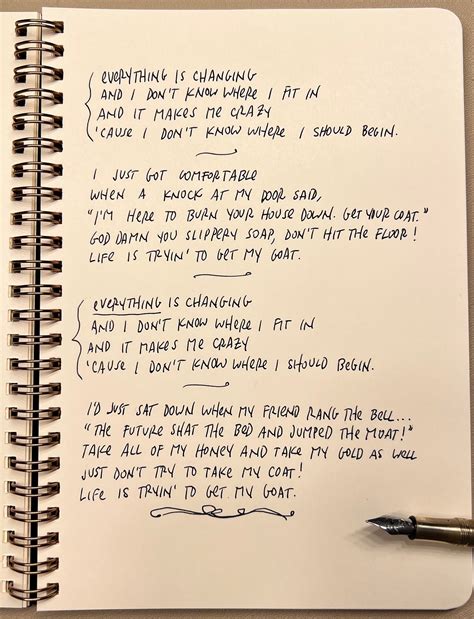 EVERYTHING IS CHANGING
AND I DON'T KNOW WHERE I FIT IN
AND IT MAKES ME CRAZY
'CAUSE I DON'T KNOW WHERE I SHOULD BEGIN.
I JUST GOT COMFORTABLE
WHEN A KNOCK AT MY DOOR SAID,
"I'M HERE TO BURN YOUR HOUSE DOWN. GET YOUR COAT."
GOD DAMN YOU SLIPPERY SOAP, DON'T HIT THE FLOOR!
LIFE IS TRYIN' TO GET MY GOAT.
EVERYTHING IS CHANGING
AND I DON'T KNOW WHERE I FIT IN
AND IT MAKES ME CRAZY
'CAUSE I DON'T KNOW WHERE I SHOULD BEGIN.
I'D JUST SAT DOWN WHEN MY FRIEND RANG THE BELL...
"THE FUTURE SHAT THE BED AND JUMPED THE MOAT!"
TAKE ALL OF MY HONEY AND TAKE MY GOLD AS WELL
JUST DON'T TRY TO TAKE MY COAT!
LIFE IS TRYIN' TO GET MY GOAT.